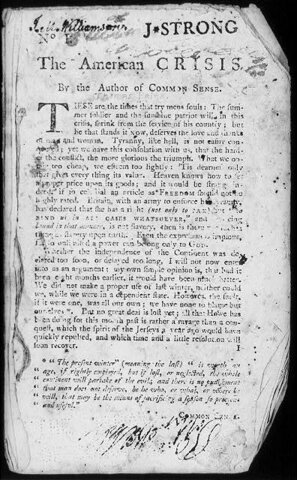 J. STRONG
No
The American CRISIS.
By the Author of COMMON SENSE.
THESE are the times that try mens souls: The sum-
mer soldier and the sunshine patriot will, in this
crisis, shrink from the service of his country; but
he that stands it now, deserves the love and thanks
of man and woman. Tyranny, like hell, is not easily con-
quered; yet we have this consolation with us, that the hard-
the conflict, the more glorious the triumph. What we ob-
too cheap, we esteem too lightly: 'Tis dearness only
that gives every thing its value. Heaven knows how to
proper price upon its goods; and it would be strange
if so celestial an article as FREEDOM should not
highly rated. Britain, with an army to enforce her
has declared that she has a right (not only to TAX) but
BIND us in ALL CASES WHATSOEVER," and if being
bound in that manner, is not slavery, then is there not
thing as slavery upon earth. Even the expression is impious,
unlimited a power can belong only to GOD.
Whether the independence of the Continent was de-
clared too soon, or delayed too long, I will not now enter
into as an argument; my own simple opinion is, that had it
been eight months earlier, it would have been much better.
We did not make a proper use of last winter, neither could
we, while we were in a dependent state. However, the fault,
if it were one, was all our own; we have none to blame but
ourselves*. But no great deal is lost yet; all that Howe has
been doing for this month past is rather a ravage than a con-
quest, which the spirit of the Jerseys a year ago would have
quickly repulsed, and which time and a little resolution will
soon recover.
* "The present winter" (meaning the last) "is worth an
age, if rightly employed, but if lost, or neglected, the whole
continent will partake of the evil; and there is no punishment
that man does not deserve, be he who, or what, or where he
will, that may be the means of sacrificing a season so precious
and useful."
COMMON SENSE.